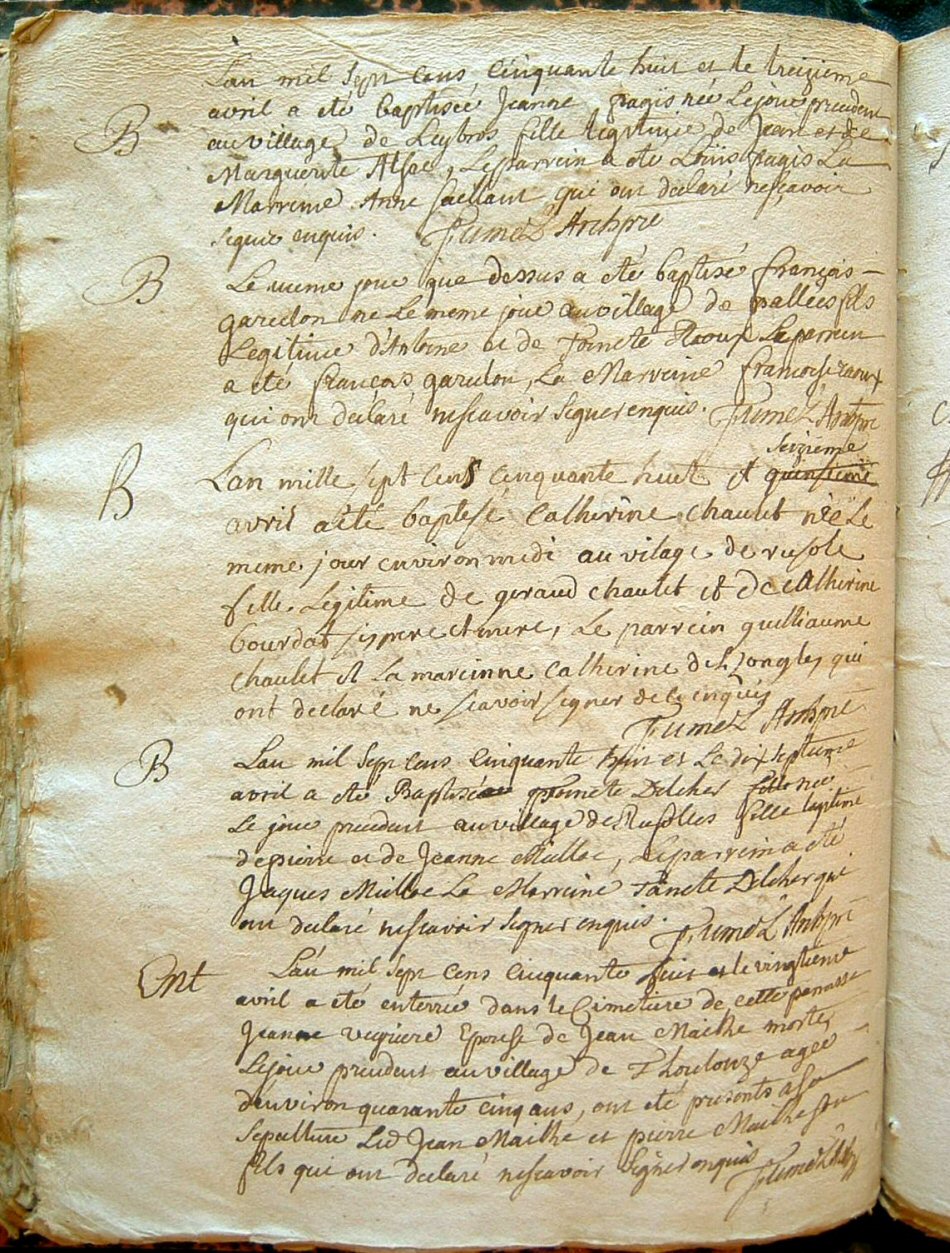 L'an mil sept cens cinquante huit et le treizieme
B avril a été baptisée Jeanne pagis née le jour precedent
au village de Leybros fille legitime de Jean et de
Marguerite , Le parrein a été Loüis pagis La
Marreine Anne qui ont declaré ne sçavoir
signer enquis. Jumel Archpre
B Le meme jour que dessus a été baptisé françois
garulon né le meme jour au village de fils
Legitime d'Antoine et de Toinete Raoux Le perrein
a été françois garulon, La Marreine françoise raoux
qui ont declaré ne scavoir signer enquis. Jumel Archpre
seizieme
B L'an mille sept cens cinquante huit et quinsieme
avril a été baptesé Catherine chaulet née Le
meme jour environ midi au vilage de rusole
fille Legitime de geraud chaulet et de catherine
bourdat ses pere et mere, Le parrein guilliaume
chaulet et La mareinne catherine qui
ont declaré ne scavoir signer de ce enquis
Jumel Archpre
B L'an mil sept cens cinquante huit et Le dix septieme
avril a été Baptisée Toinete Delcher fille née
Le jour precedent au village de fille legitime
de pierre et de Jeanne , Le parrein a été
Jaques La Marreine Toinete Delcher qui
ont declaré ne scavoir signer enquis. Jumel Archpre
Ent L'an mil sept cens cinquante huit et le vingtieme
avril a été enterrée dans le Cimetiere de cette paroisse
Jeanne Epouse de Jean Maithe morte
Le jour precedent au village de Thoulouze agée
d'environ quarante cinq ans, ont été presents a sa
sepulture Led Jean Maithe et pierre Maithe son
fils qui ont declaré ne scavoir signer enquis Jumel